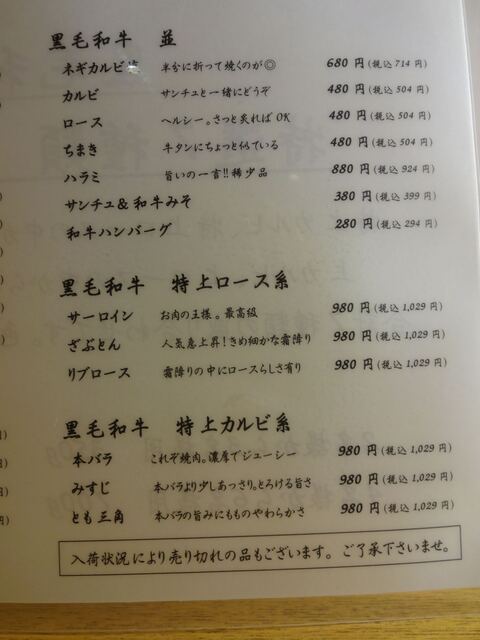 黒毛和牛 並
ネギカルビ 半分に折って焼くのが◎ 680円(税込714円)
カルビ サンチュと一緒にどうぞ 480円(税込504円)
ロース ヘルシー。さっと炙ればOK 480円(税込504円)
ちまき 牛タンにちょっと似ている 480円(税込504円)
ハラミ 旨いの一言!!稀少品 880円(税込924円)
サンチュ&和牛みそ 380円(税込399円)
和牛ハンバーグ 280円(税込294円)
黒毛和牛 特上ロース系
サーロイン お肉の王様。最高級 980円(税込1,029円)
ざぶとん 人気急上昇!きめ細かな霜降り 980円(税込1,029円)
リブロース 霜降りの中にロースらしさ有り 980円(税込1,029円)
黒毛和牛 特上カルビ系
本バラ これぞ焼肉。濃厚でジューシー 980円(税込1,029円)
みすじ 本バラより少しあっさり。とろける旨さ 980円(税込1,029円)
とも三角 本バラの旨みにもものやわらかさ 980円(税込1,029円)
入荷状況により売り切れの品もございます。ご了承下さいませ。